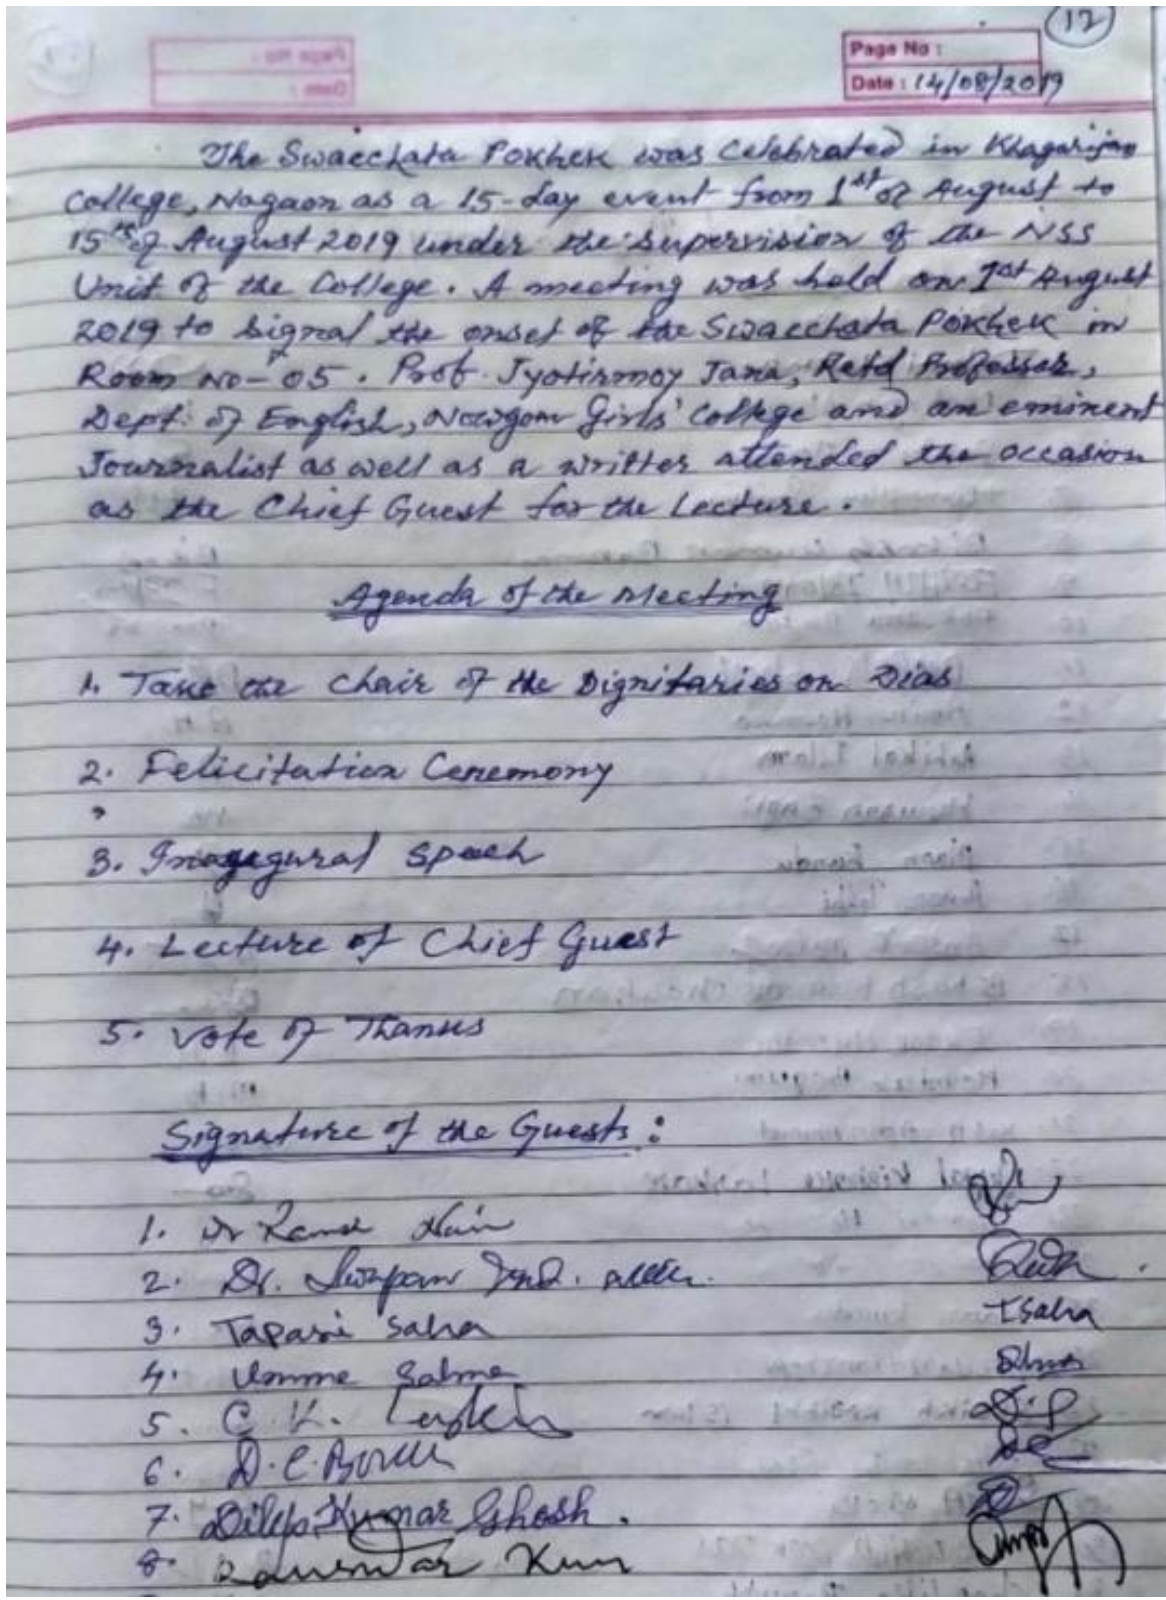 12
Page No :
Date : 14/08/2019
The Swacchata Pokhek was Celebrated in Khagarijan
College, Nagaon as a 15-day event from 1st of August to
15th of August 2019 under the supervision of the NSS
Unit of the College. A meeting was held on 1st August
2019 to signal the onset of the Swacchata Pokhek in
Room No-05. Prof. Jyotirmoy Jana, Retd Professor,
Dept. of English, Nowgong Girls' College and an eminent
Journalist as well as a writter attended the occasion
as the Chief Guest for the Lecture.
Agenda of the Meeting
1. Take the Chair of the Dignitaries on Dias
2. Felicitation Ceremony
3. Inaugural Speech
4. Lecture of Chief Guest
5. Vote of Thanks
Signature of the Guests :
1. Dr
2. Dr.
3. Tapasi Saha TSaha
4. Umme Salma
5. C. K.
6. D. C.
7. Dilip Kumar Ghosh.
8.